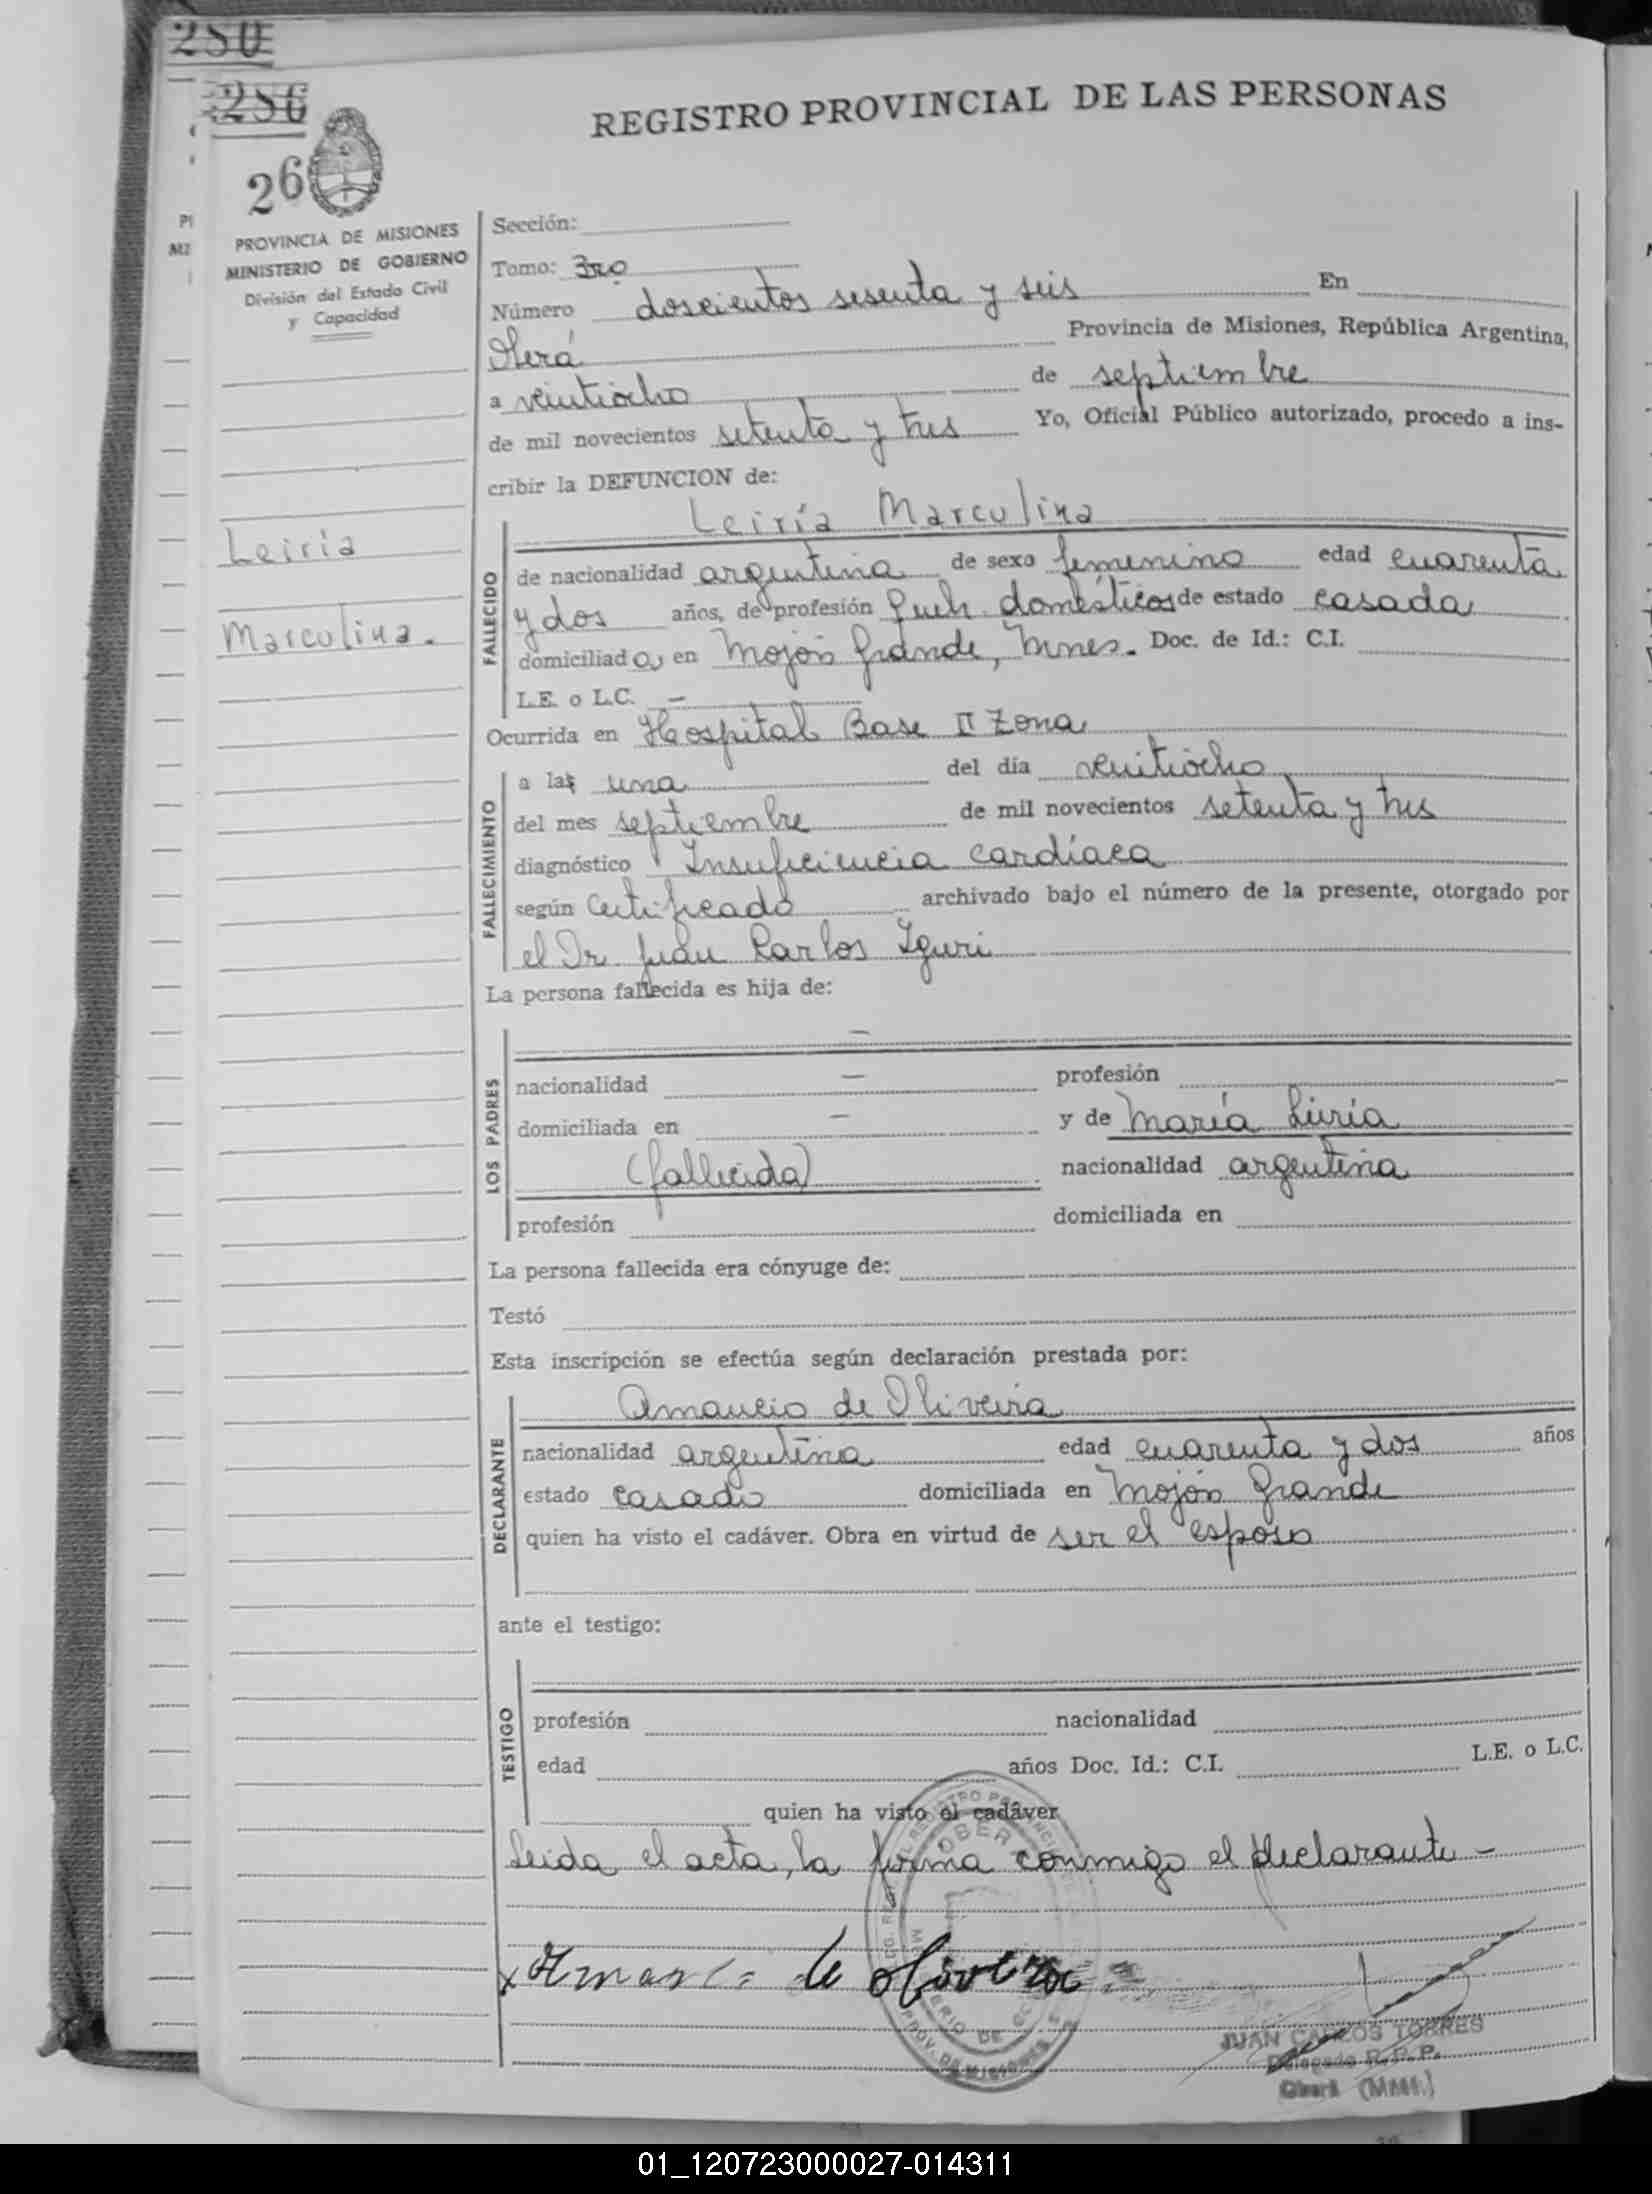 280
286
26
REGISTRO PROVINCIAL DE LAS PERSONAS
PROVINCIA DE MISIONES
MINISTERIO DE GOBIERNO
División del Estado Civil
y Capacidad
Leiría
Marculina.
Sección:
Tomo: 3ro
Número doscientos sesenta y seis En
Oberá Provincia de Misiones, República Argentina,
a veintiocho de septiembre
de mil novecientos setenta y tres Yo, Oficial Público autorizado, procedo a ins-
cribir la DEFUNCION de:
Leiría Marculina
FALLECIDO
de nacionalidad argentina de sexo femenino edad cuarenta
y dos años, de profesión Queh. domésticos de estado casada
domiciliada en Mojón Grande, Mnes. Doc. de Id.: C.I.
L.E. o L.C. —
Ocurrida en Hospital Base II Zona
FALLECIMIENTO
a las una del día veintiocho
del mes septiembre de mil novecientos setenta y tres
diagnóstico Insuficiencia cardíaca
según Certificado archivado bajo el número de la presente, otorgado por
el Dr. Juan Carlos Yguri
La persona fallecida es hija de:
LOS PADRES
—
nacionalidad — profesión
domiciliada en — y de María Liría
(fallecida) nacionalidad argentina
profesión domiciliada en
La persona fallecida era cónyuge de:
Testó
Esta inscripción se efectúa según declaración prestada por:
DECLARANTE
Amancio de Oliveira
nacionalidad argentina edad cuarenta y dos años
estado casado domiciliada en Mojón Grande
quien ha visto el cadáver. Obra en virtud de ser el esposo
ante el testigo:
TESTIGO
profesión nacionalidad
edad años Doc. Id.: C.I. L.E. o L.C.
quien ha visto el cadáver
Leida el acta, la firma conmigo el declarante -
x Amancio de oliveira
JUAN CARLOS TORRES
Delegado R.P.P.
Oberá (Mnes.)
01_120723000027-014311